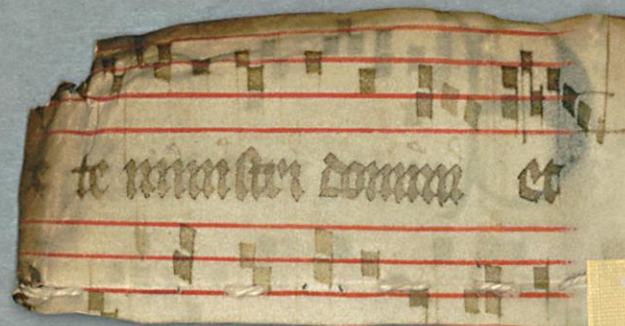 te ministri domini et